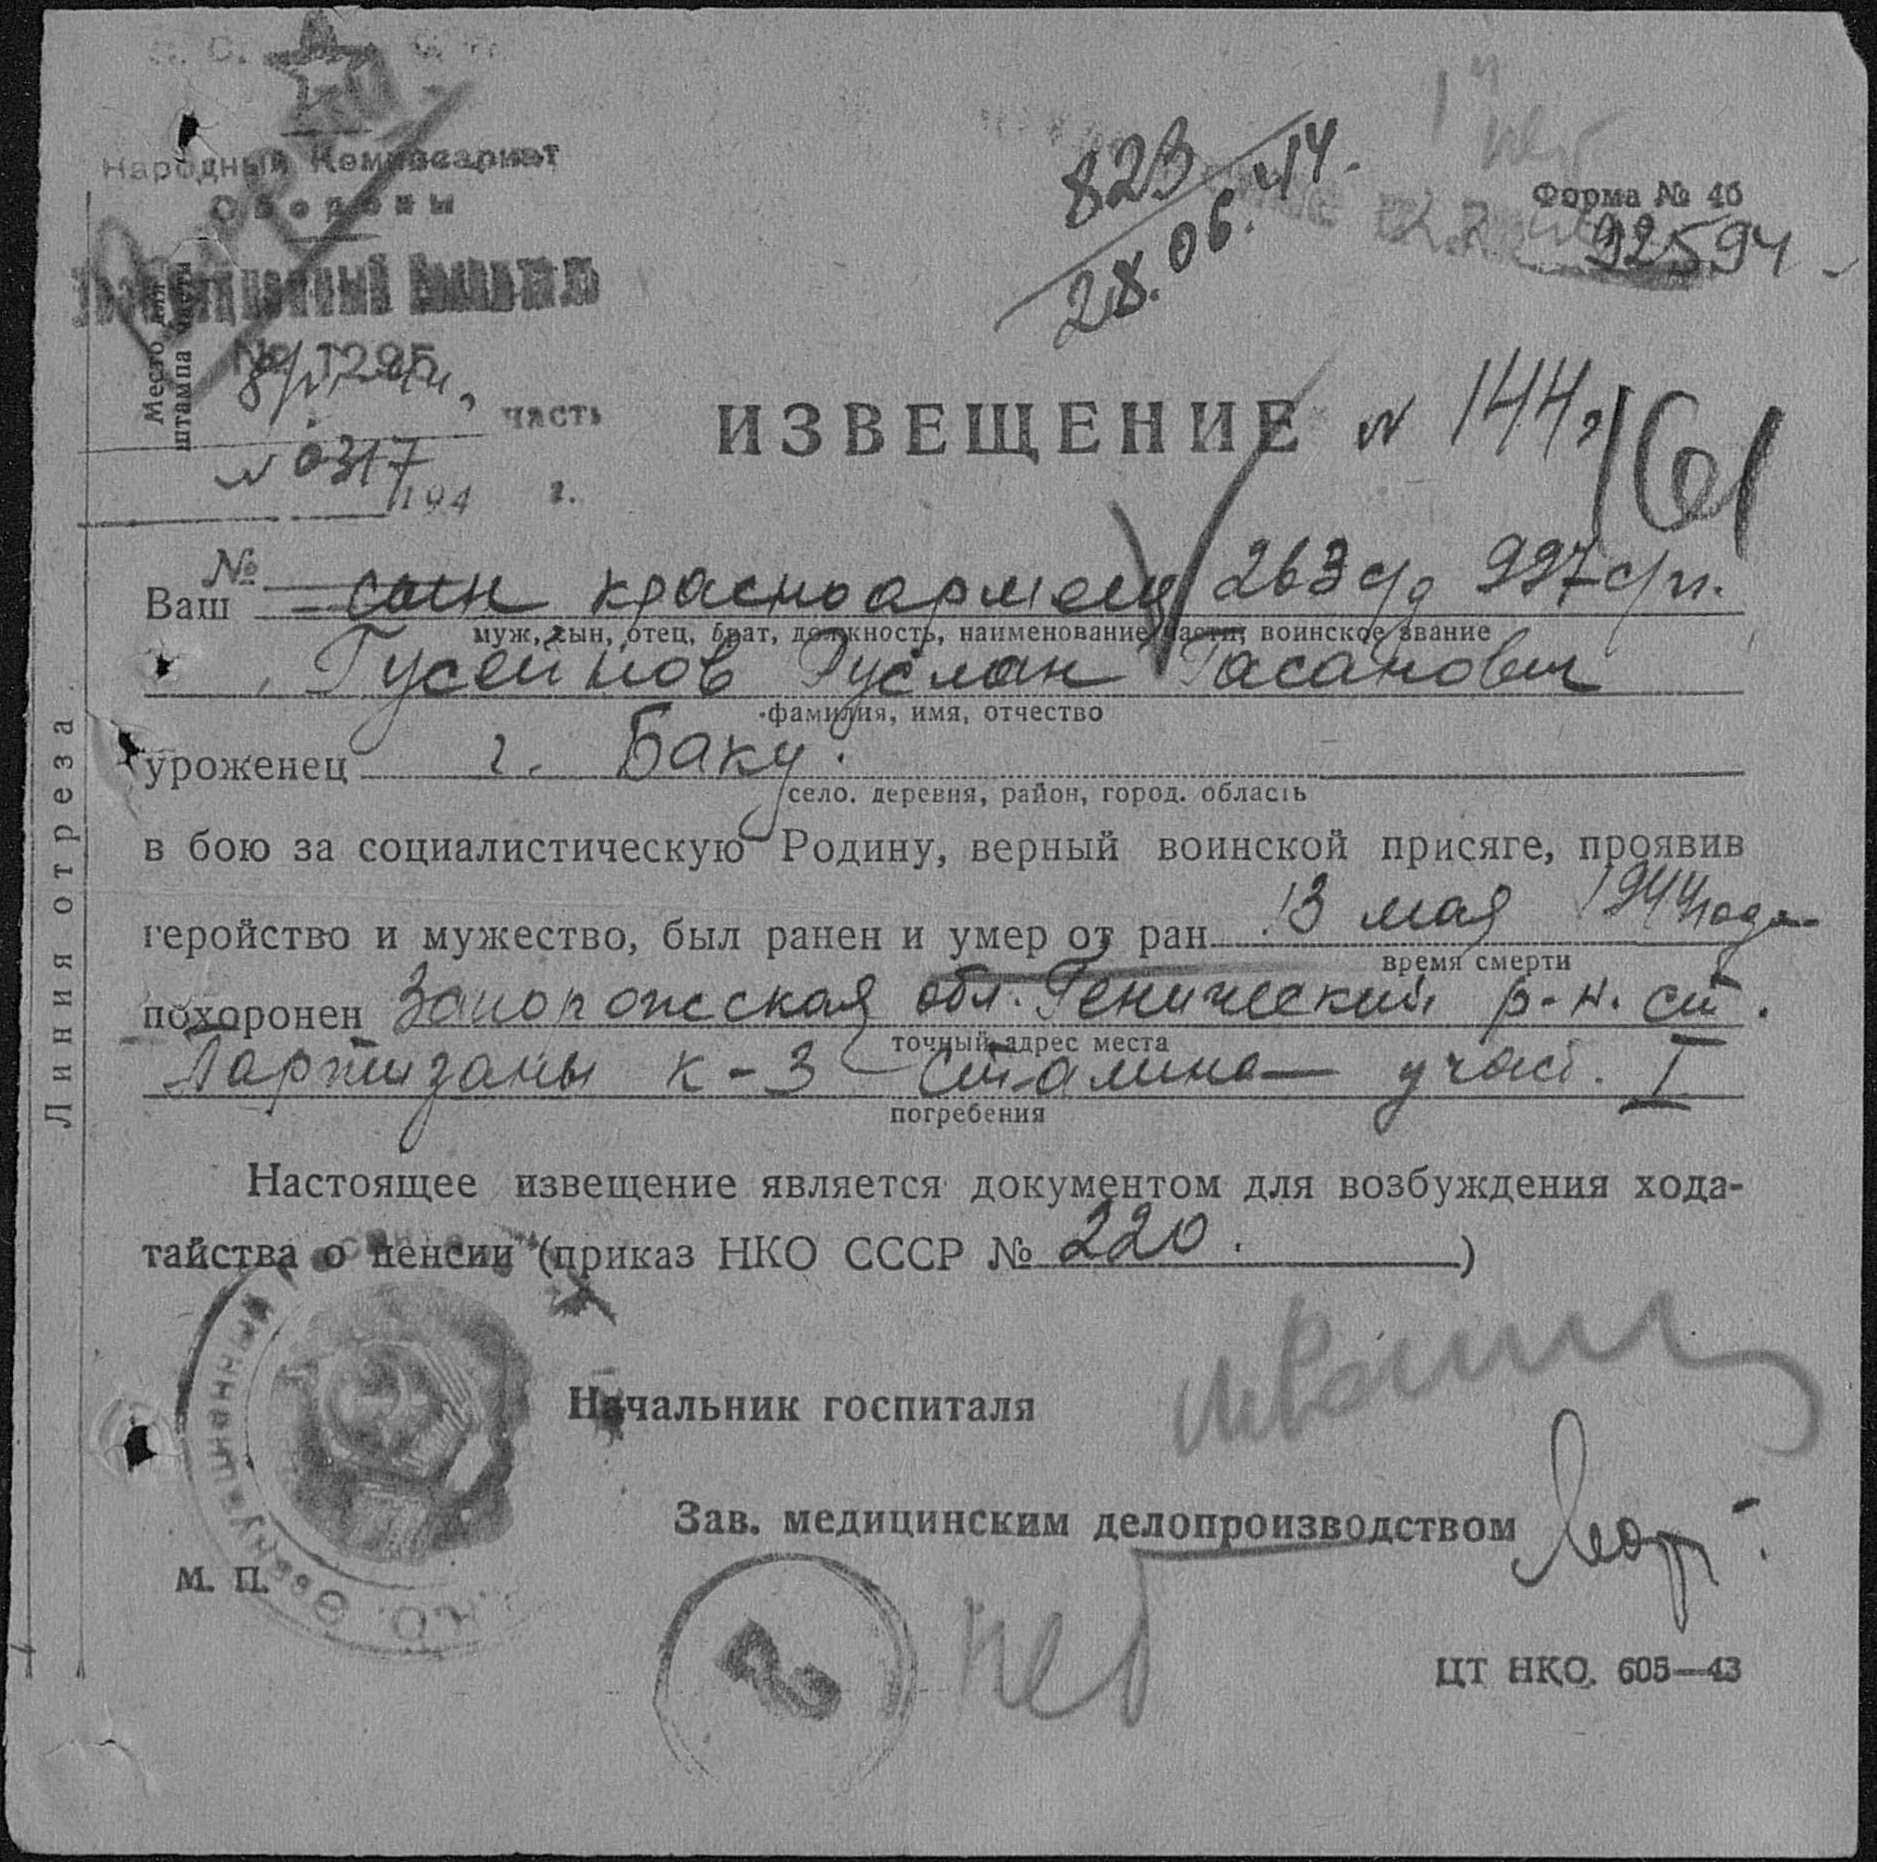 Народный Комиссариат
Обороны
Эвакуационный Госпиталь
№ 1295
Место для
штампа части
часть
N 0317
194 г.
№
823
28.06.44.
Форма № 4б
92594
ИЗВЕЩЕНИЕ N 144
161
Ваш сын красноармеец 263 с/д 997 с/п.
муж, сын, отец, брат, должность, наименование части, воинское звание
Гусейнов Руслан Гасанович
фамилия, имя, отчество
уроженец г. Баку.
село, деревня, район, город, область
в бою за социалистическую Родину, верный воинской присяге, проявив
геройство и мужество, был ранен и умер от ран 13 мая 1944 года
время смерти
похоронен Запорожская обл. Генический р-н. ст.
точный адрес места
Партизаны к-з Сталина участ. I
погребения
Настоящее извещение является документом для возбуждения хода-
тайства о пенсии (приказ НКО СССР № 220. )
Начальник госпиталя
Зав. медицинским делопроизводством
М. П.
2
ЦТ НКО. 605—43
Линия отреза